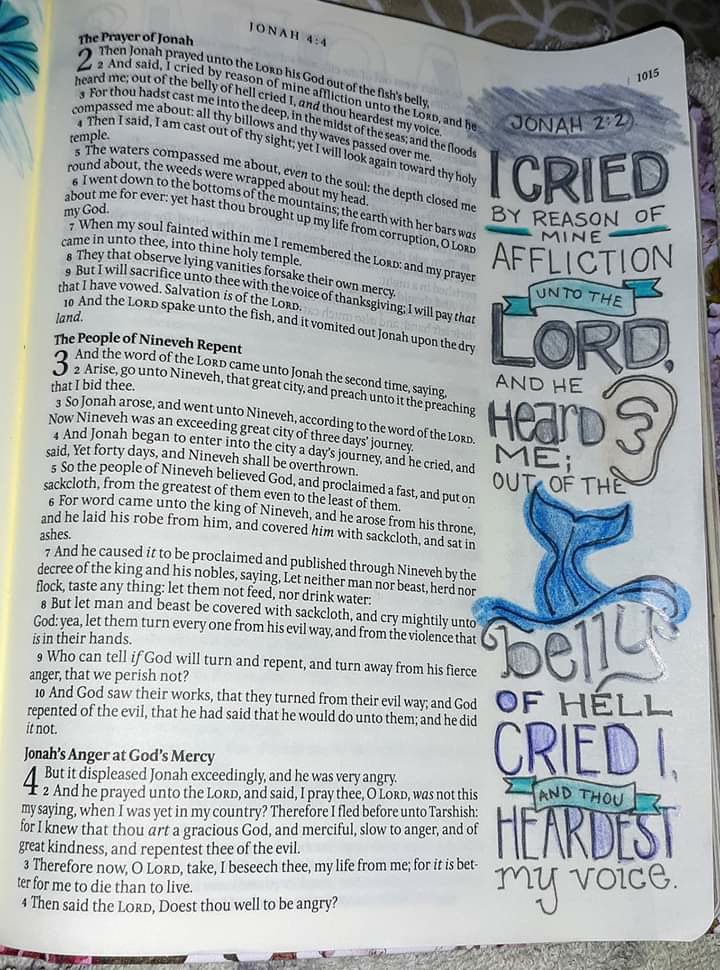 JONAH 4:4
1015
The Prayer of Jonah
2 Then Jonah prayed unto the LORD his God out of the fish's belly,
2 And said, I cried by reason of mine affliction unto the LORD, and he
heard me; out of the belly of hell cried I, and thou heardest my voice.
3 For thou hadst cast me into the deep, in the midst of the seas; and the floods
compassed me about: all thy billows and thy waves passed over me.
4 Then I said, I am cast out of thy sight; yet I will look again toward thy holy
temple.
5 The waters compassed me about, even to the soul: the depth closed me
round about, the weeds were wrapped about my head.
6 I went down to the bottoms of the mountains; the earth with her bars was
about me for ever: yet hast thou brought up my life from corruption, O LORD
my God.
7 When my soul fainted within me I remembered the LORD: and my prayer
came in unto thee, into thine holy temple.
8 They that observe lying vanities forsake their own mercy.
9 But I will sacrifice unto thee with the voice of thanksgiving; I will pay that
that I have vowed. Salvation is of the LORD.
10 And the LORD spake unto the fish, and it vomited out Jonah upon the dry
land.
The People of Nineveh Repent
3 And the word of the LORD came unto Jonah the second time, saying,
2 Arise, go unto Nineveh, that great city, and preach unto it the preaching
that I bid thee.
3 So Jonah arose, and went unto Nineveh, according to the word of the LORD.
Now Nineveh was an exceeding great city of three days' journey.
4 And Jonah began to enter into the city a day's journey, and he cried, and
said, Yet forty days, and Nineveh shall be overthrown.
5 So the people of Nineveh believed God, and proclaimed a fast, and put on
sackcloth, from the greatest of them even to the least of them.
6 For word came unto the king of Nineveh, and he arose from his throne,
and he laid his robe from him, and covered him with sackcloth, and sat in
ashes.
7 And he caused it to be proclaimed and published through Nineveh by the
decree of the king and his nobles, saying, Let neither man nor beast, herd nor
flock, taste any thing: let them not feed, nor drink water:
8 But let man and beast be covered with sackcloth, and cry mightily unto
God: yea, let them turn every one from his evil way, and from the violence that
is in their hands.
9 Who can tell if God will turn and repent, and turn away from his fierce
anger, that we perish not?
10 And God saw their works, that they turned from their evil way; and God
repented of the evil, that he had said that he would do unto them; and he did
it not.
Jonah's Anger at God's Mercy
4 But it displeased Jonah exceedingly, and he was very angry.
2 And he prayed unto the LORD, and said, I pray thee, O LORD, was not this
my saying, when I was yet in my country? Therefore I fled before unto Tarshish:
for I knew that thou art a gracious God, and merciful, slow to anger, and of
great kindness, and repentest thee of the evil.
3 Therefore now, O LORD, take, I beseech thee, my life from me; for it is bet-
ter for me to die than to live.
4 Then said the LORD, Doest thou well to be angry?
JONAH 2:2
I CRIED
BY REASON OF
MINE
AFFLICTION
UNTO THE
LORD,
AND HE
HEARD
ME;
OUT OF THE
belly
OF HELL
CRIED I,
AND THOU
HEARDEST
my voice.